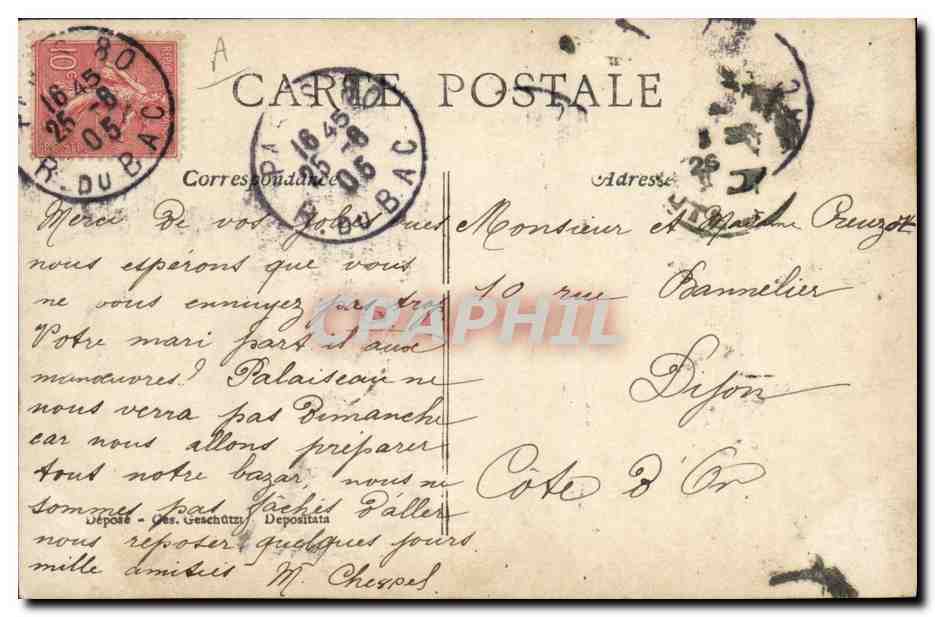 A
CARTE POSTALE
10
80
16 45
25 - 8
05
R. DU BAC
PA 80
16 45
25 - 8
05
R. DU BAC
26
Correspondance
Adresse
Merci De vos jolies vues
nous espérons que vous
ne vous ennuyez pas trop
Votre mari part il aux
manœuvres? Palaiseau ne
nous verra pas Dimanche
car nous allons préparer
tout notre bazar, nous ne
sommes pas fâchés d'aller
Déposé - Ges. Geschützt Depositata
nous reposer quelques jours
mille amitiés M. Cheppel
Monsieur et Madame Creuzot
10 rue Bannelier
Dijon
Côte d'Or
CPAPHIL